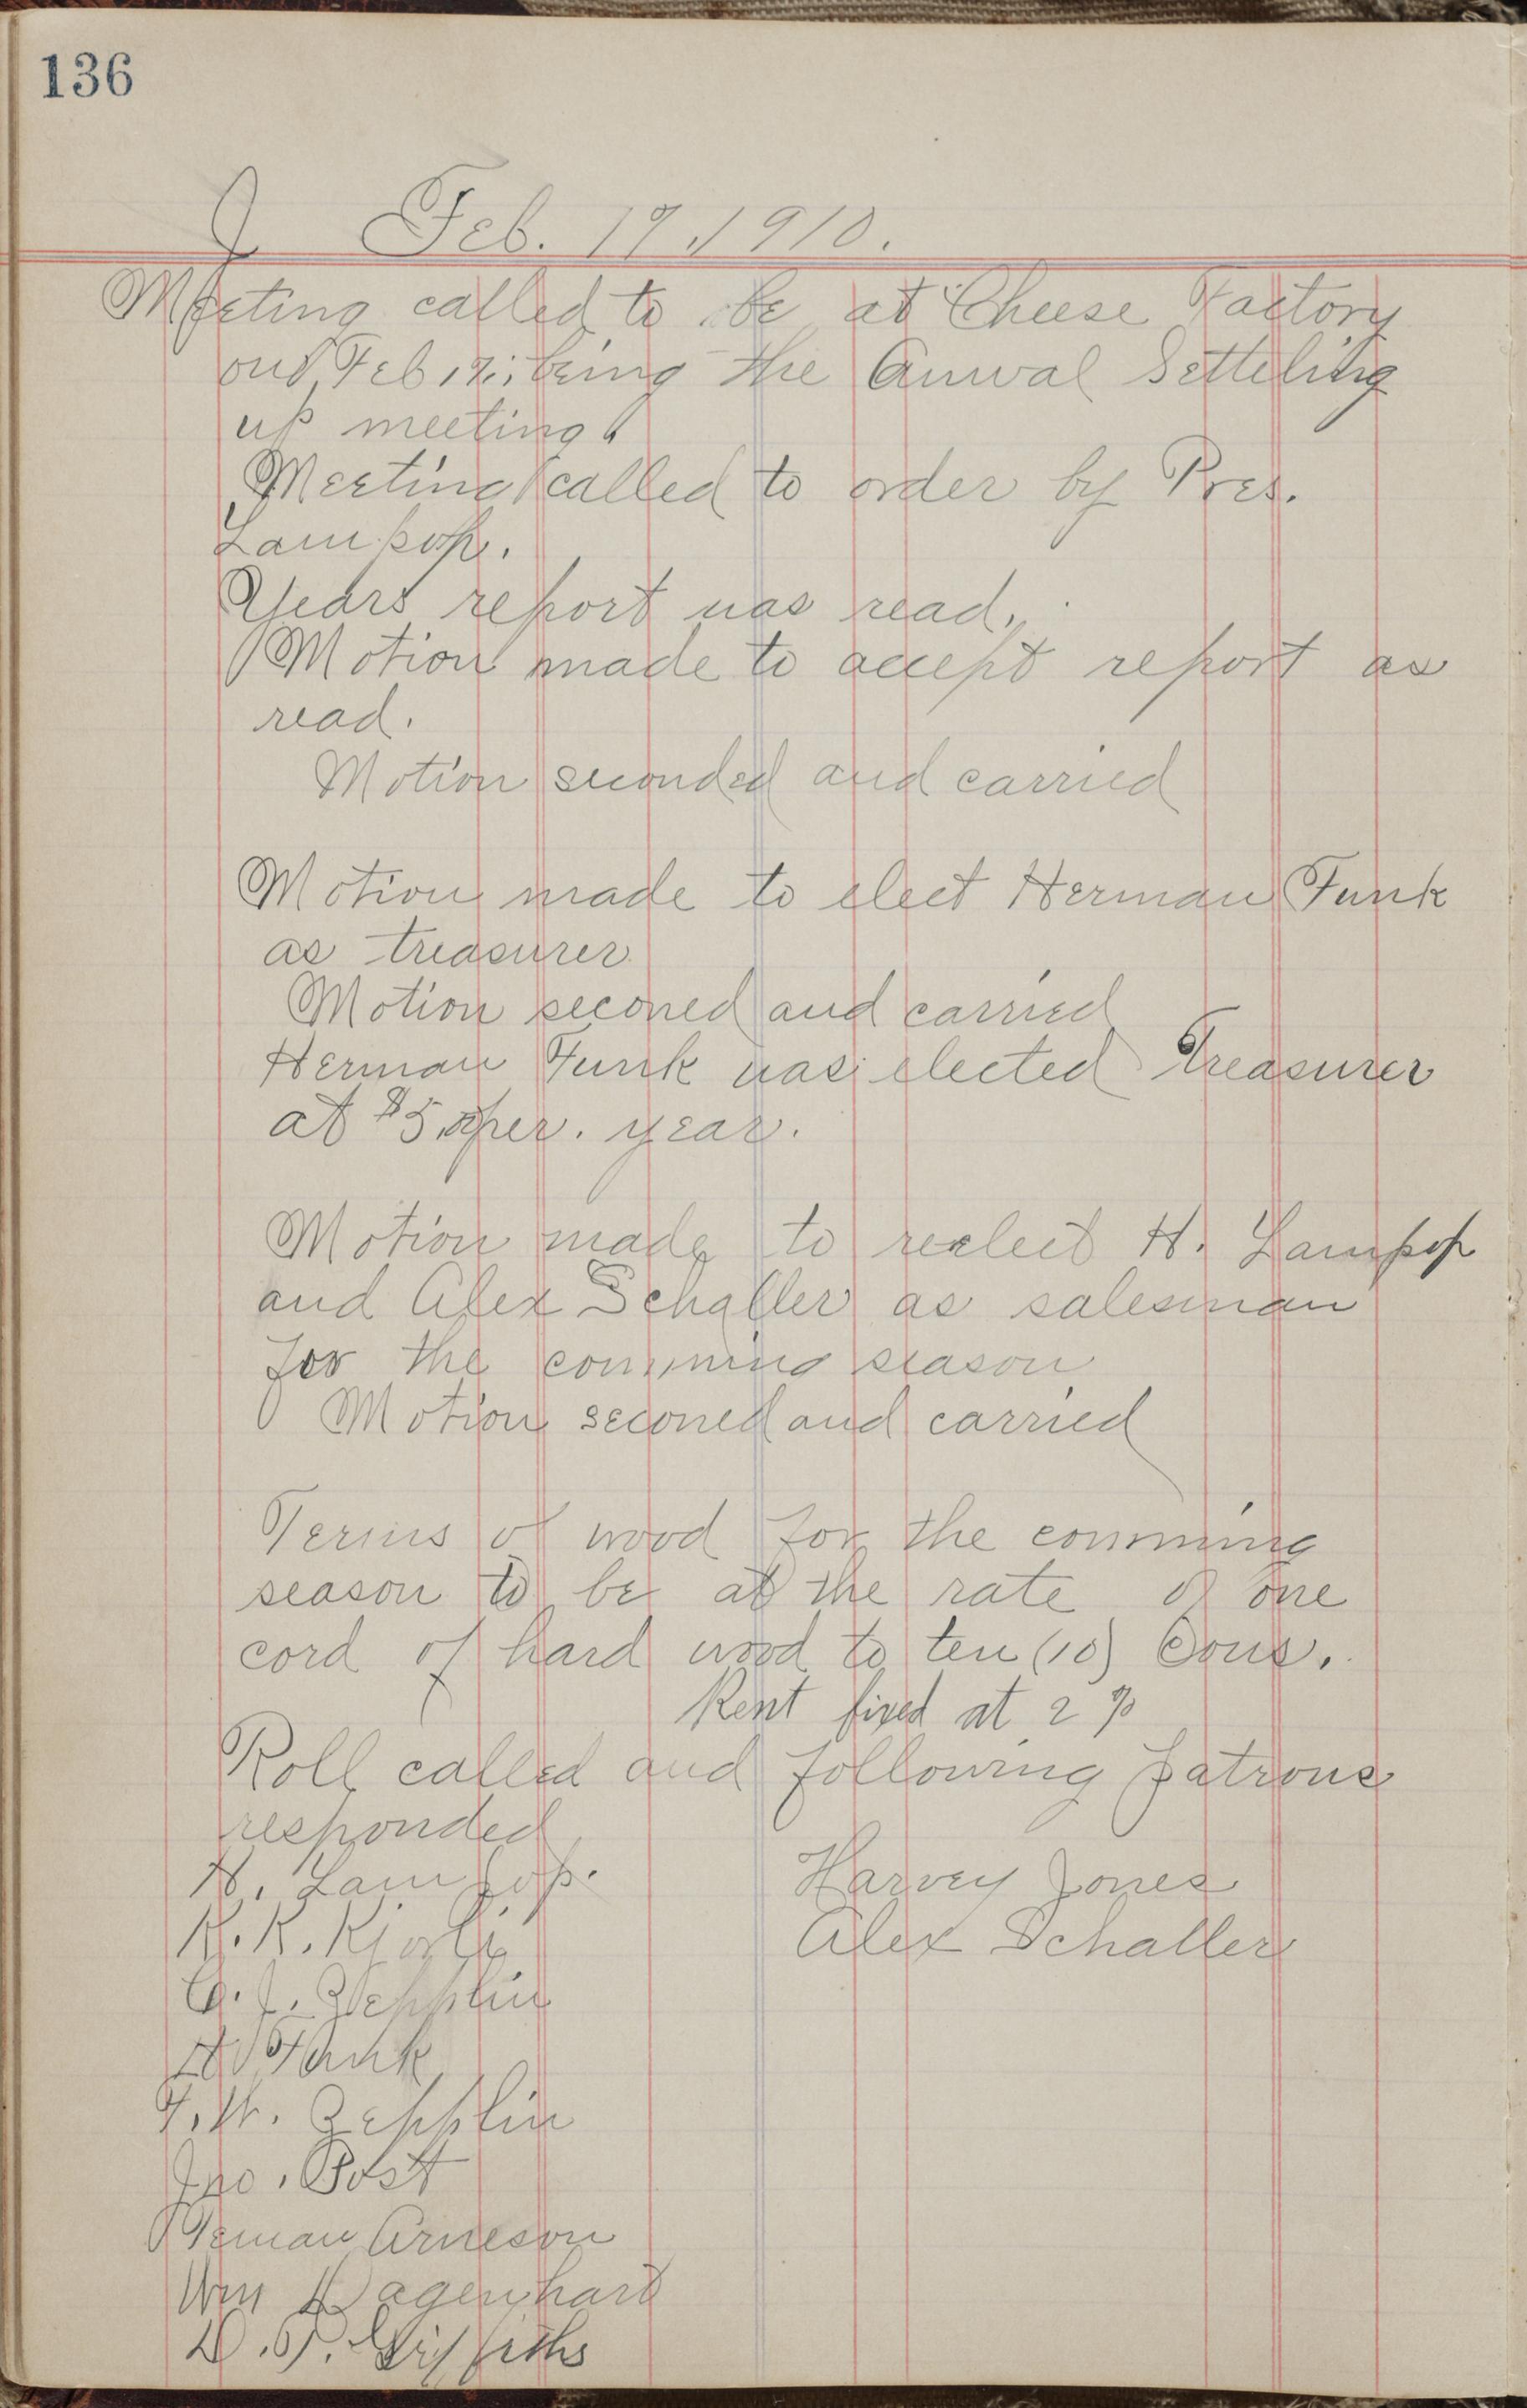 136
J Feb. 17, 1910.
Meeting called to be at Cheese Factory
on Feb 17; being the Anuval Setteling
up meeting.
Meeting called to order by Pres.
Lampop.
Years report was read.
Motion made to accept report as
read.
Motion seconded and carried
Motion made to elect Herman Funk
as treasurer
Motion seconed and carried
Herman Funk was elected Treasurer
at $5.00 per. year.
Motion made to reelect H. Lampop
and Alex Schaller as salesman
for the comming season
Motion seconed and carried
Terms of wood for the comming
season to be at the rate of one
cord of hard wood to ten (10) Cows.
Rent fixed at 2 %
Roll called and following patrons
responded
H. Lampop.
Harvey Jones
K. K.
Alex Schaller
C. J. Zepplin
H. Funk
F. W. Zepplin
Jno. Post
Teman Arneson
Wm Dagenhard
D. P. Griffiths